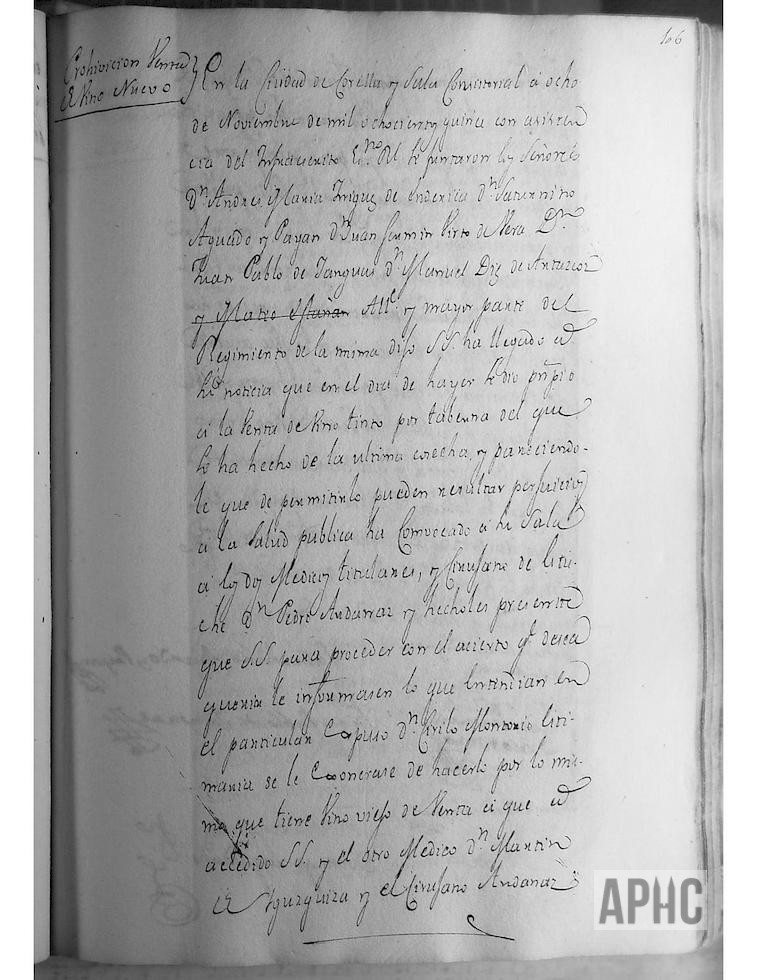 106
Prohivicion Venta
de Vino Nuevo
En la Ciudad de Corella y Sala Consistorial a ocho
de Noviembre de mil ochocientos quince con asisten
cia del Infraescrito Es.no Rl se juntaron los Señores
Dn Andres Maria Iñiguez de dn Saturnino
Aguado y Payan dn Juan Fermin Virto de Vera Dn
Juan Pablo de Tanguas dn Manuel Diz de Antazcoz
y Mateo y mayor parte del
Regimiento de la misma dijo S.S. ha llegado a
su noticia que en el dia de hayer se dio prnpio
a la Venta de Vino tinto por taberna del que
se ha hecho de la ultima cosecha, y pareciendo-
le que de permitirlo pueden resultar perjuicios
a la Salud publica ha Combocado a su Sala
a los dos Medicos titulares, y Cirujano de Litis-
che Dn Pedro Andarraz y hecholes presente
que S.S. para proceder con el acierto qe desea
queria le informasen lo que entendian en
el particular Expuso dn Cirilo Montorio liti-
mania se le Exonerase de hacerlo por lo mis-
mo que tiene Vino viejo de Venta a que a
accedido S.S. y el otro Medico dn Martin
de Yguzquiza y el Cirujano Andaraz
APHC